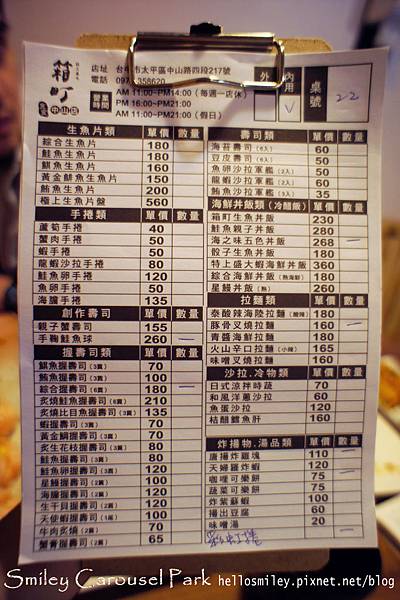 箱町
中山店
店址 台中市太平區中山路四段217號
電話
營業時間
AM 11:00~PM14:00 (每週一店休)
PM 16:00~PM21:00
AM 11:00~PM21:00 (假日)
外
內用
V
桌號
22
生魚片類 單價 數量
綜合生魚片 180
鮭魚生魚片 180
旗魚生魚片 160
黃金鯡魚生魚片 150
鮪魚生魚片 200
極上生魚片盤 560
手捲類 單價 數量
蘆筍手捲 40
蟹肉手捲 50
蝦手捲 50
龍蝦沙拉手捲 80
鮭魚卵手捲 120
魚卵手捲 50
海膽手捲 135
創作壽司 單價 數量
親子蟹壽司 155
手鞠鮭魚球 260 一
握壽司類 單價 數量
旗魚握壽司(3貫) 70
鮪魚握壽司(3貫) 100
綜合握壽司(6貫) 180 一
炙燒鮭魚握壽司(6貫) 210
炙燒比目魚握壽司(3貫) 135
蝦握壽司(3貫) 70
黃金鯛握壽司(3貫) 80
炙生花枝握壽司(3貫) 80
鮭魚握壽司(3貫) 80
鮭魚卵握壽司(3貫) 120
星鰻握壽司(2貫) 100
海膽握壽司(2貫) 120
生干貝握壽司(2貫) 120
天使蝦握壽司(1尾) 100
牛肉炙燒(2貫) 70
蟹膏握壽司(2貫) 65
壽司類 單價 數量
海苔壽司(6入) 60
豆皮壽司(5入) 50
魚卵沙拉軍艦(2入) 50
龍蝦沙拉軍艦(2入) 60
鮪魚沙拉軍艦(2入) 35
海鮮丼飯類(冷醋飯) 單價 數量
箱町生魚丼飯 230
鮭魚親子丼飯 280
海之味五色丼飯 268 一
骰子生魚丼飯 180
特上盛大蝦海鮮丼飯 360
綜合海鮮丼飯(熟海鮮) 180
星鰻丼飯(熟) 260
拉麵類 單價 數量
泰酸辣海陸拉麵(酸辣) 180
豚骨叉燒拉麵 160 一
青醬海鮮拉麵 180
火山辛口拉麵(小辣) 165
味噌叉燒拉麵 160
沙拉.冷物類 單價 數量
日式涼拌時蔬 70
和風洋蔥沙拉 60
魚蛋沙拉 120
桔醋鱈魚肝 160
炸揚物.湯品類 單價 數量
唐揚炸雞塊 110 一
天婦羅炸蝦 120
咖哩可樂餅 75 一
蔬菜可樂餅 75
炸紫蘇蝦 100
揚出豆腐 60
味噌湯 20
彩虹捲 一
Smiley Carousel Park hellosmiley.pixnet.net/blog